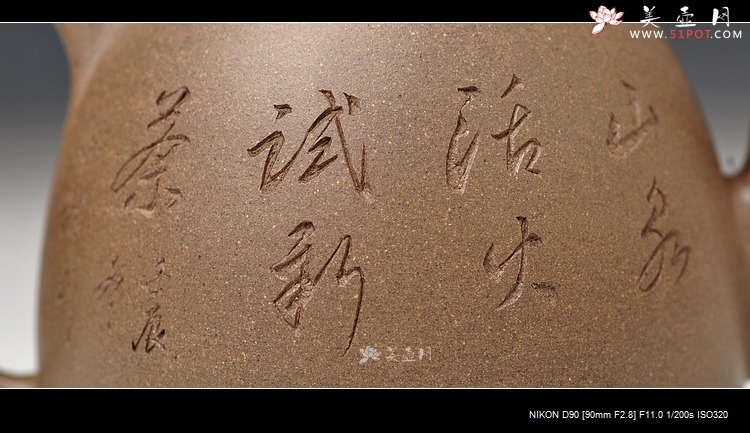 美壶网
WWW.51POT.COM
山泉
活火
试新
茶
壬辰
美壶网
NIKON D90 [90mm F2.8] F11.0 1/200s ISO320